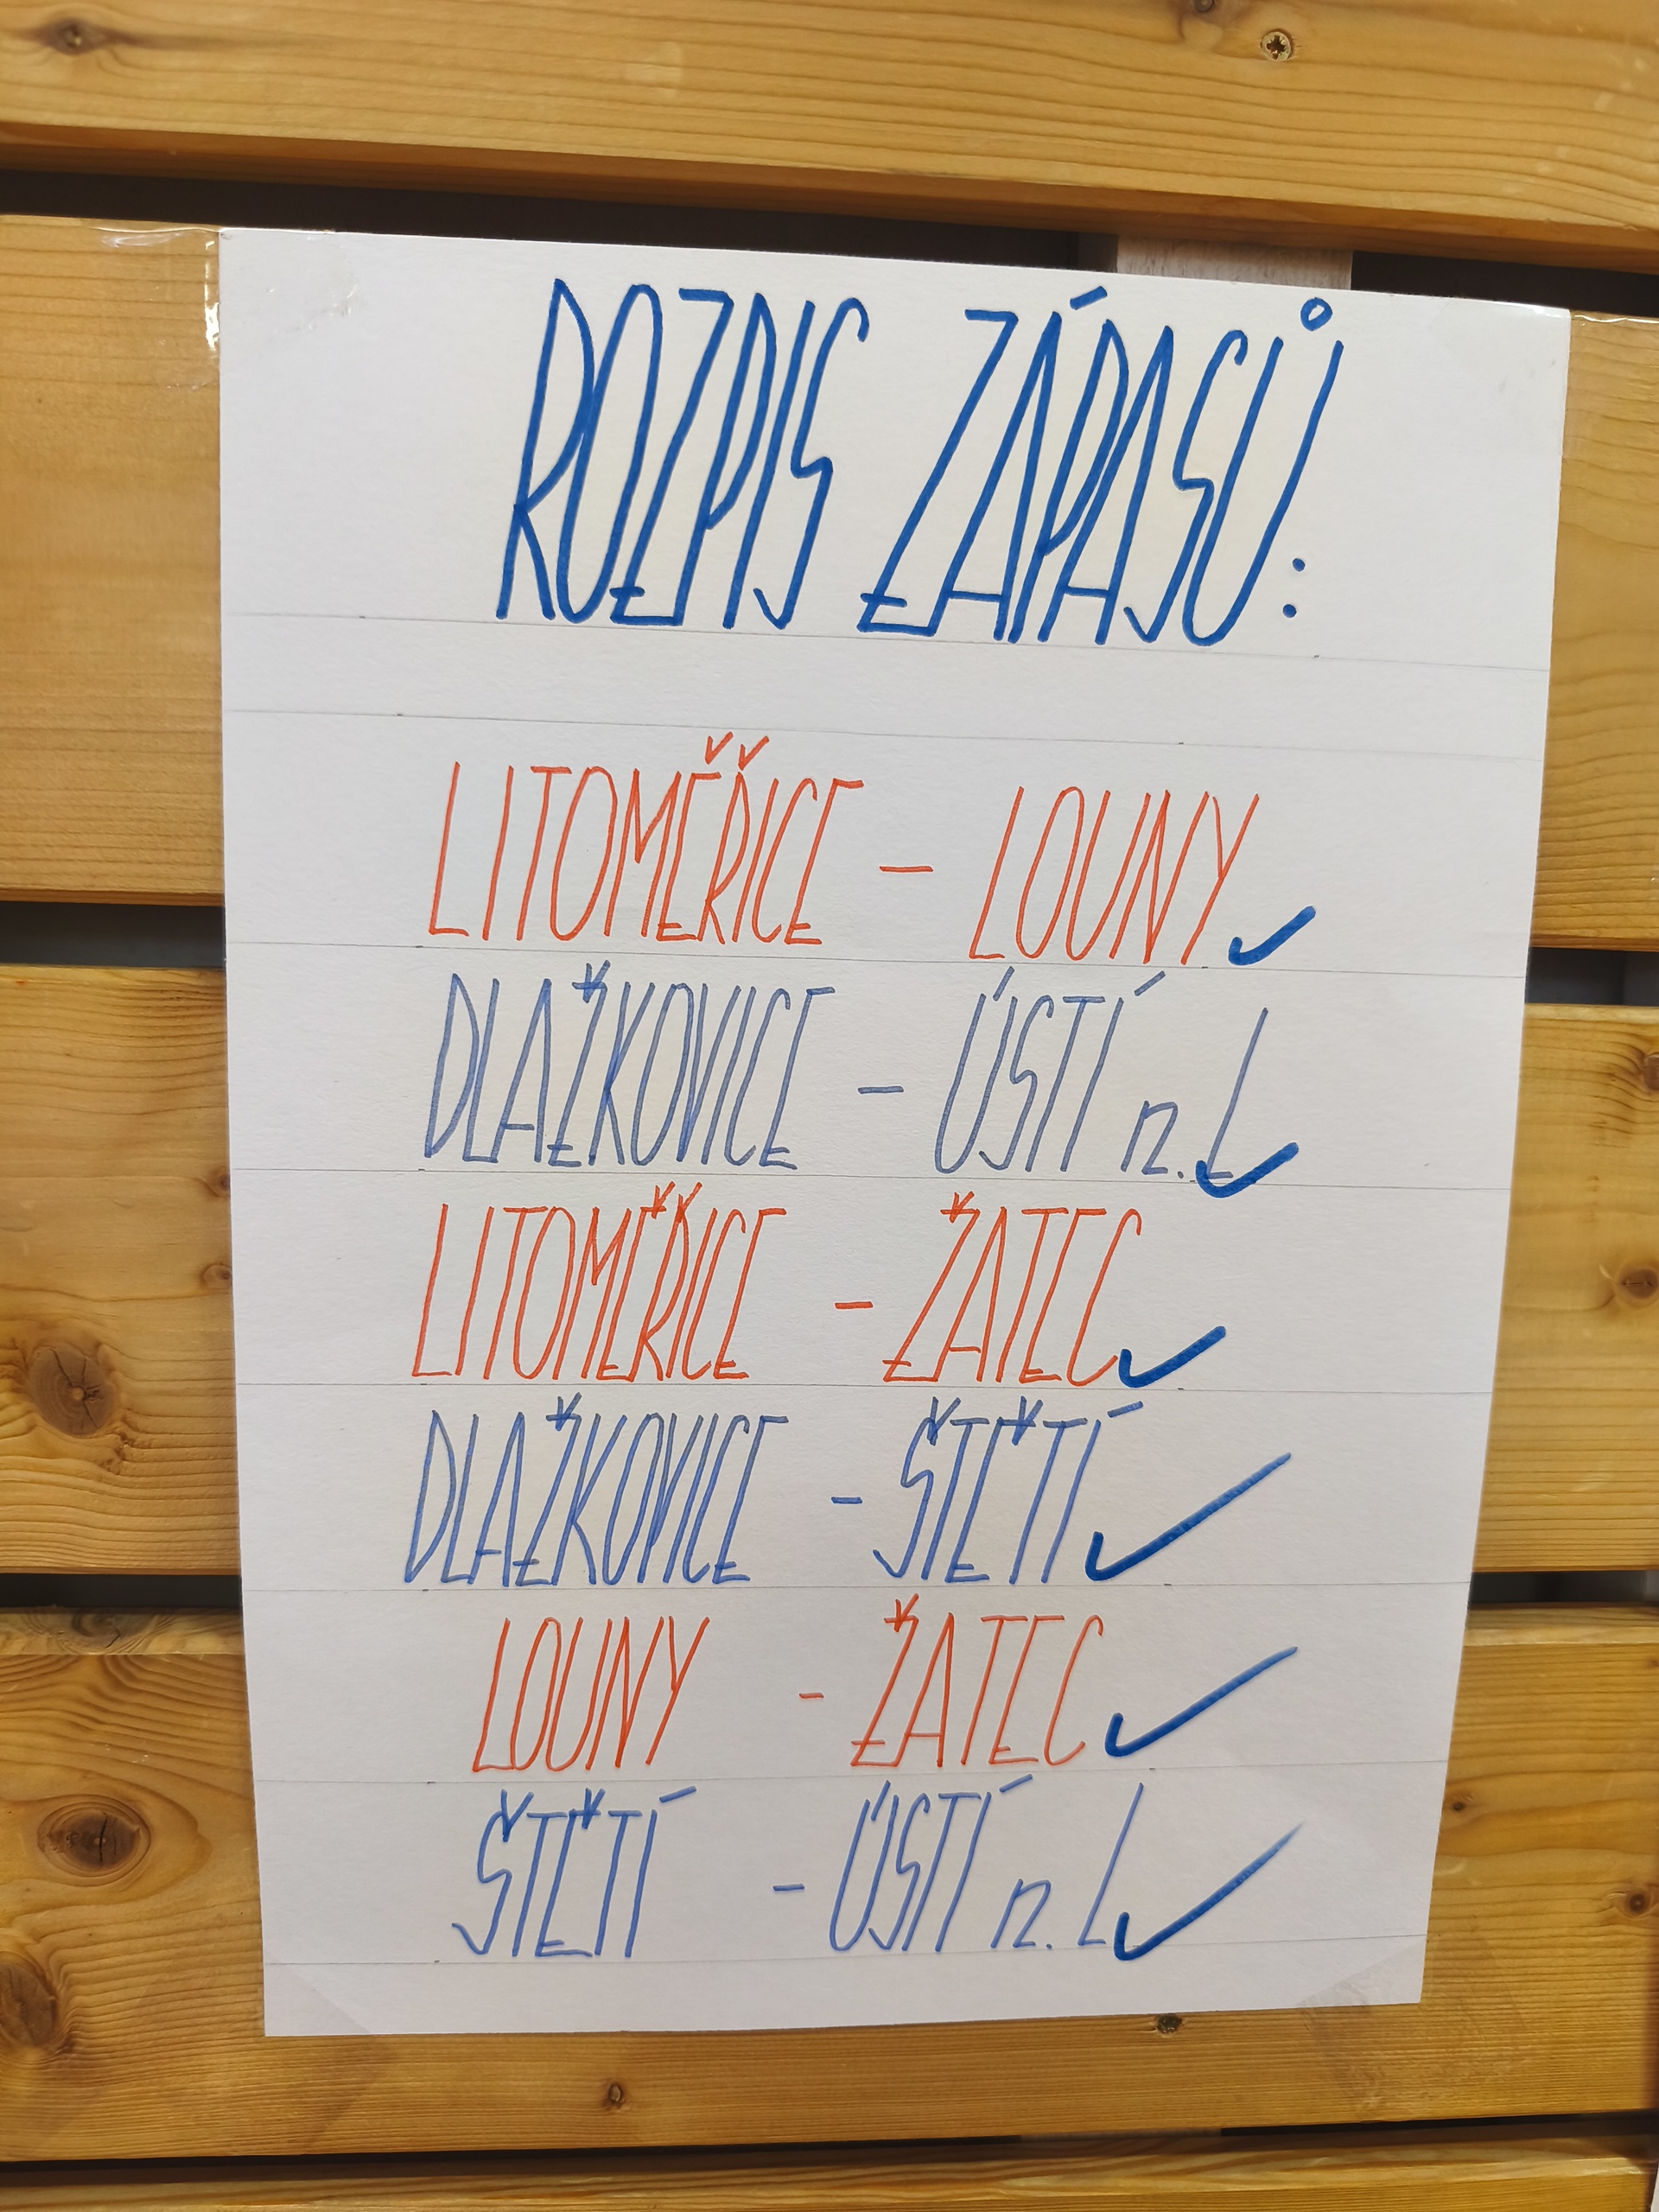 ROZPIS ZÁPASŮ:
LITOMĚŘICE - LOUNY ✓
DLAŽKOVICE - ÚSTÍ n. L ✓
LITOMĚŘICE - ŽATEC ✓
DLAŽKOVICE - ŠTĚTÍ ✓
LOUNY - ŽATEC ✓
ŠTĚTÍ - ÚSTÍ n. L ✓